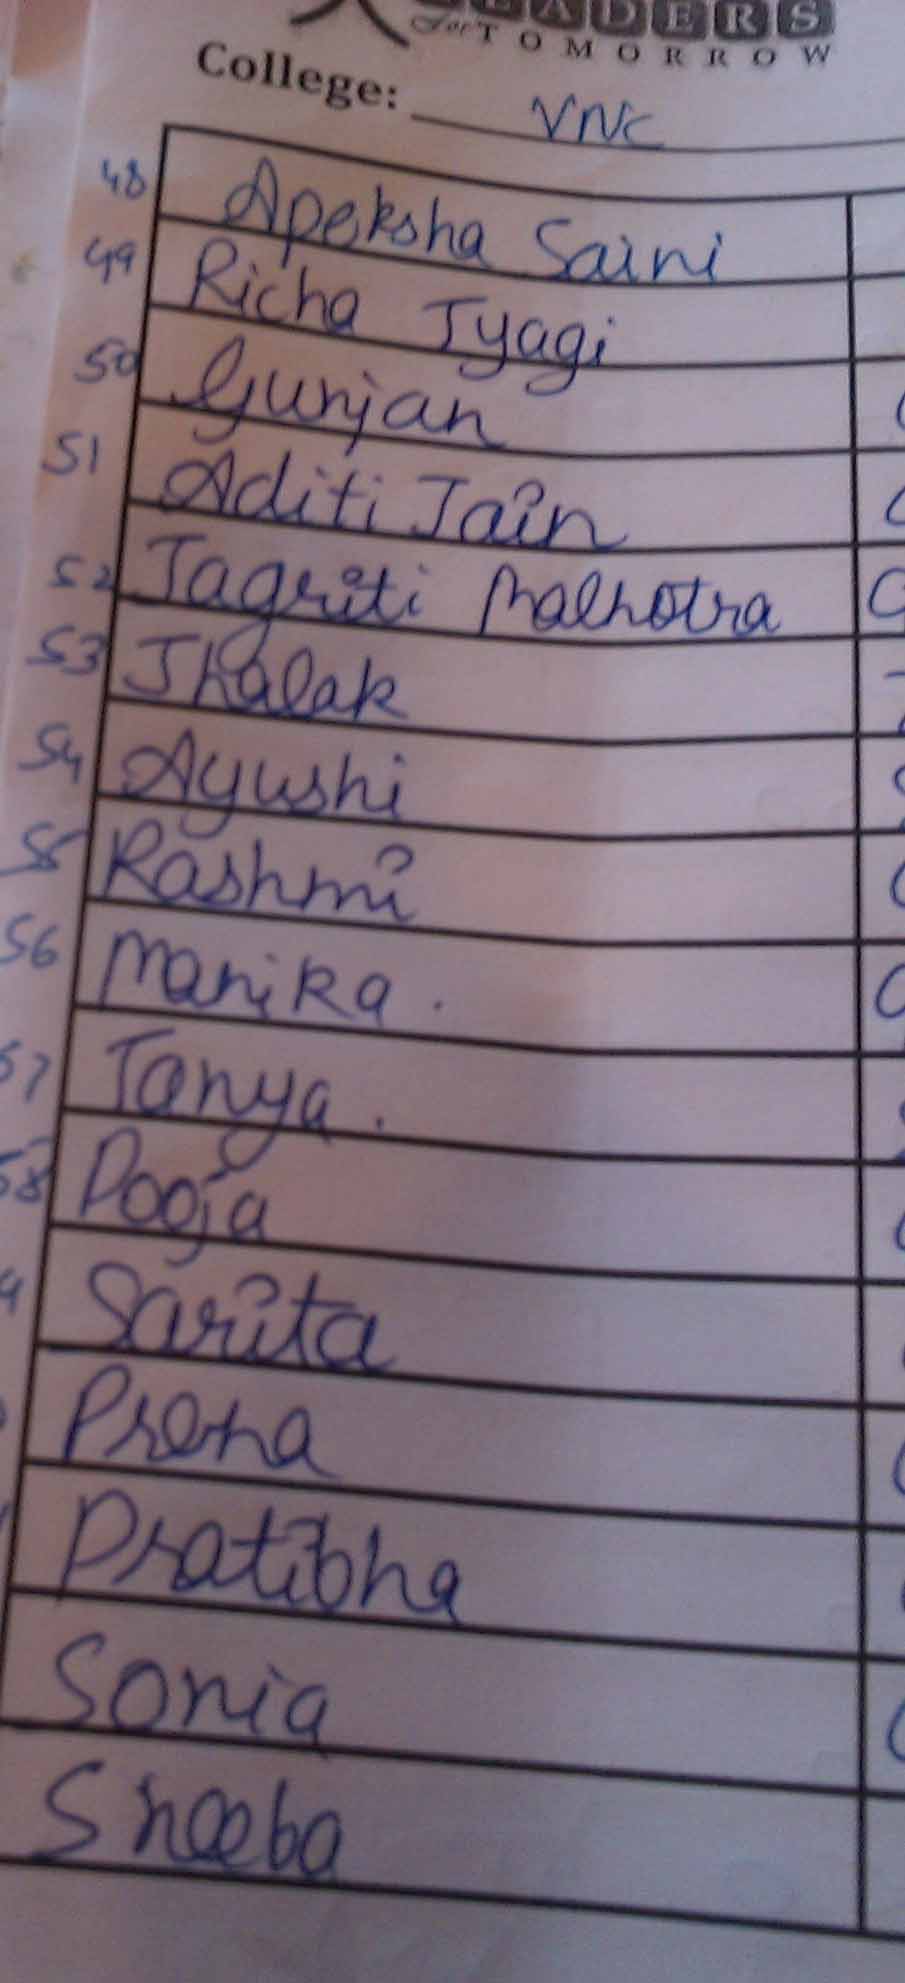 LEADERS
For TOMORROW
College: VNC
48 Apeksha Saini
49 Richa Tyagi
50 Gunjan
51 Aditi Jain
52 Jagriti Malhotra
53 Jhalak
54 Ayushi
55 Rashmi
56 Manika .
57 Tanya .
58 Pooja
Sarita
Prerna
Pratibha
Sonia
Sheeba